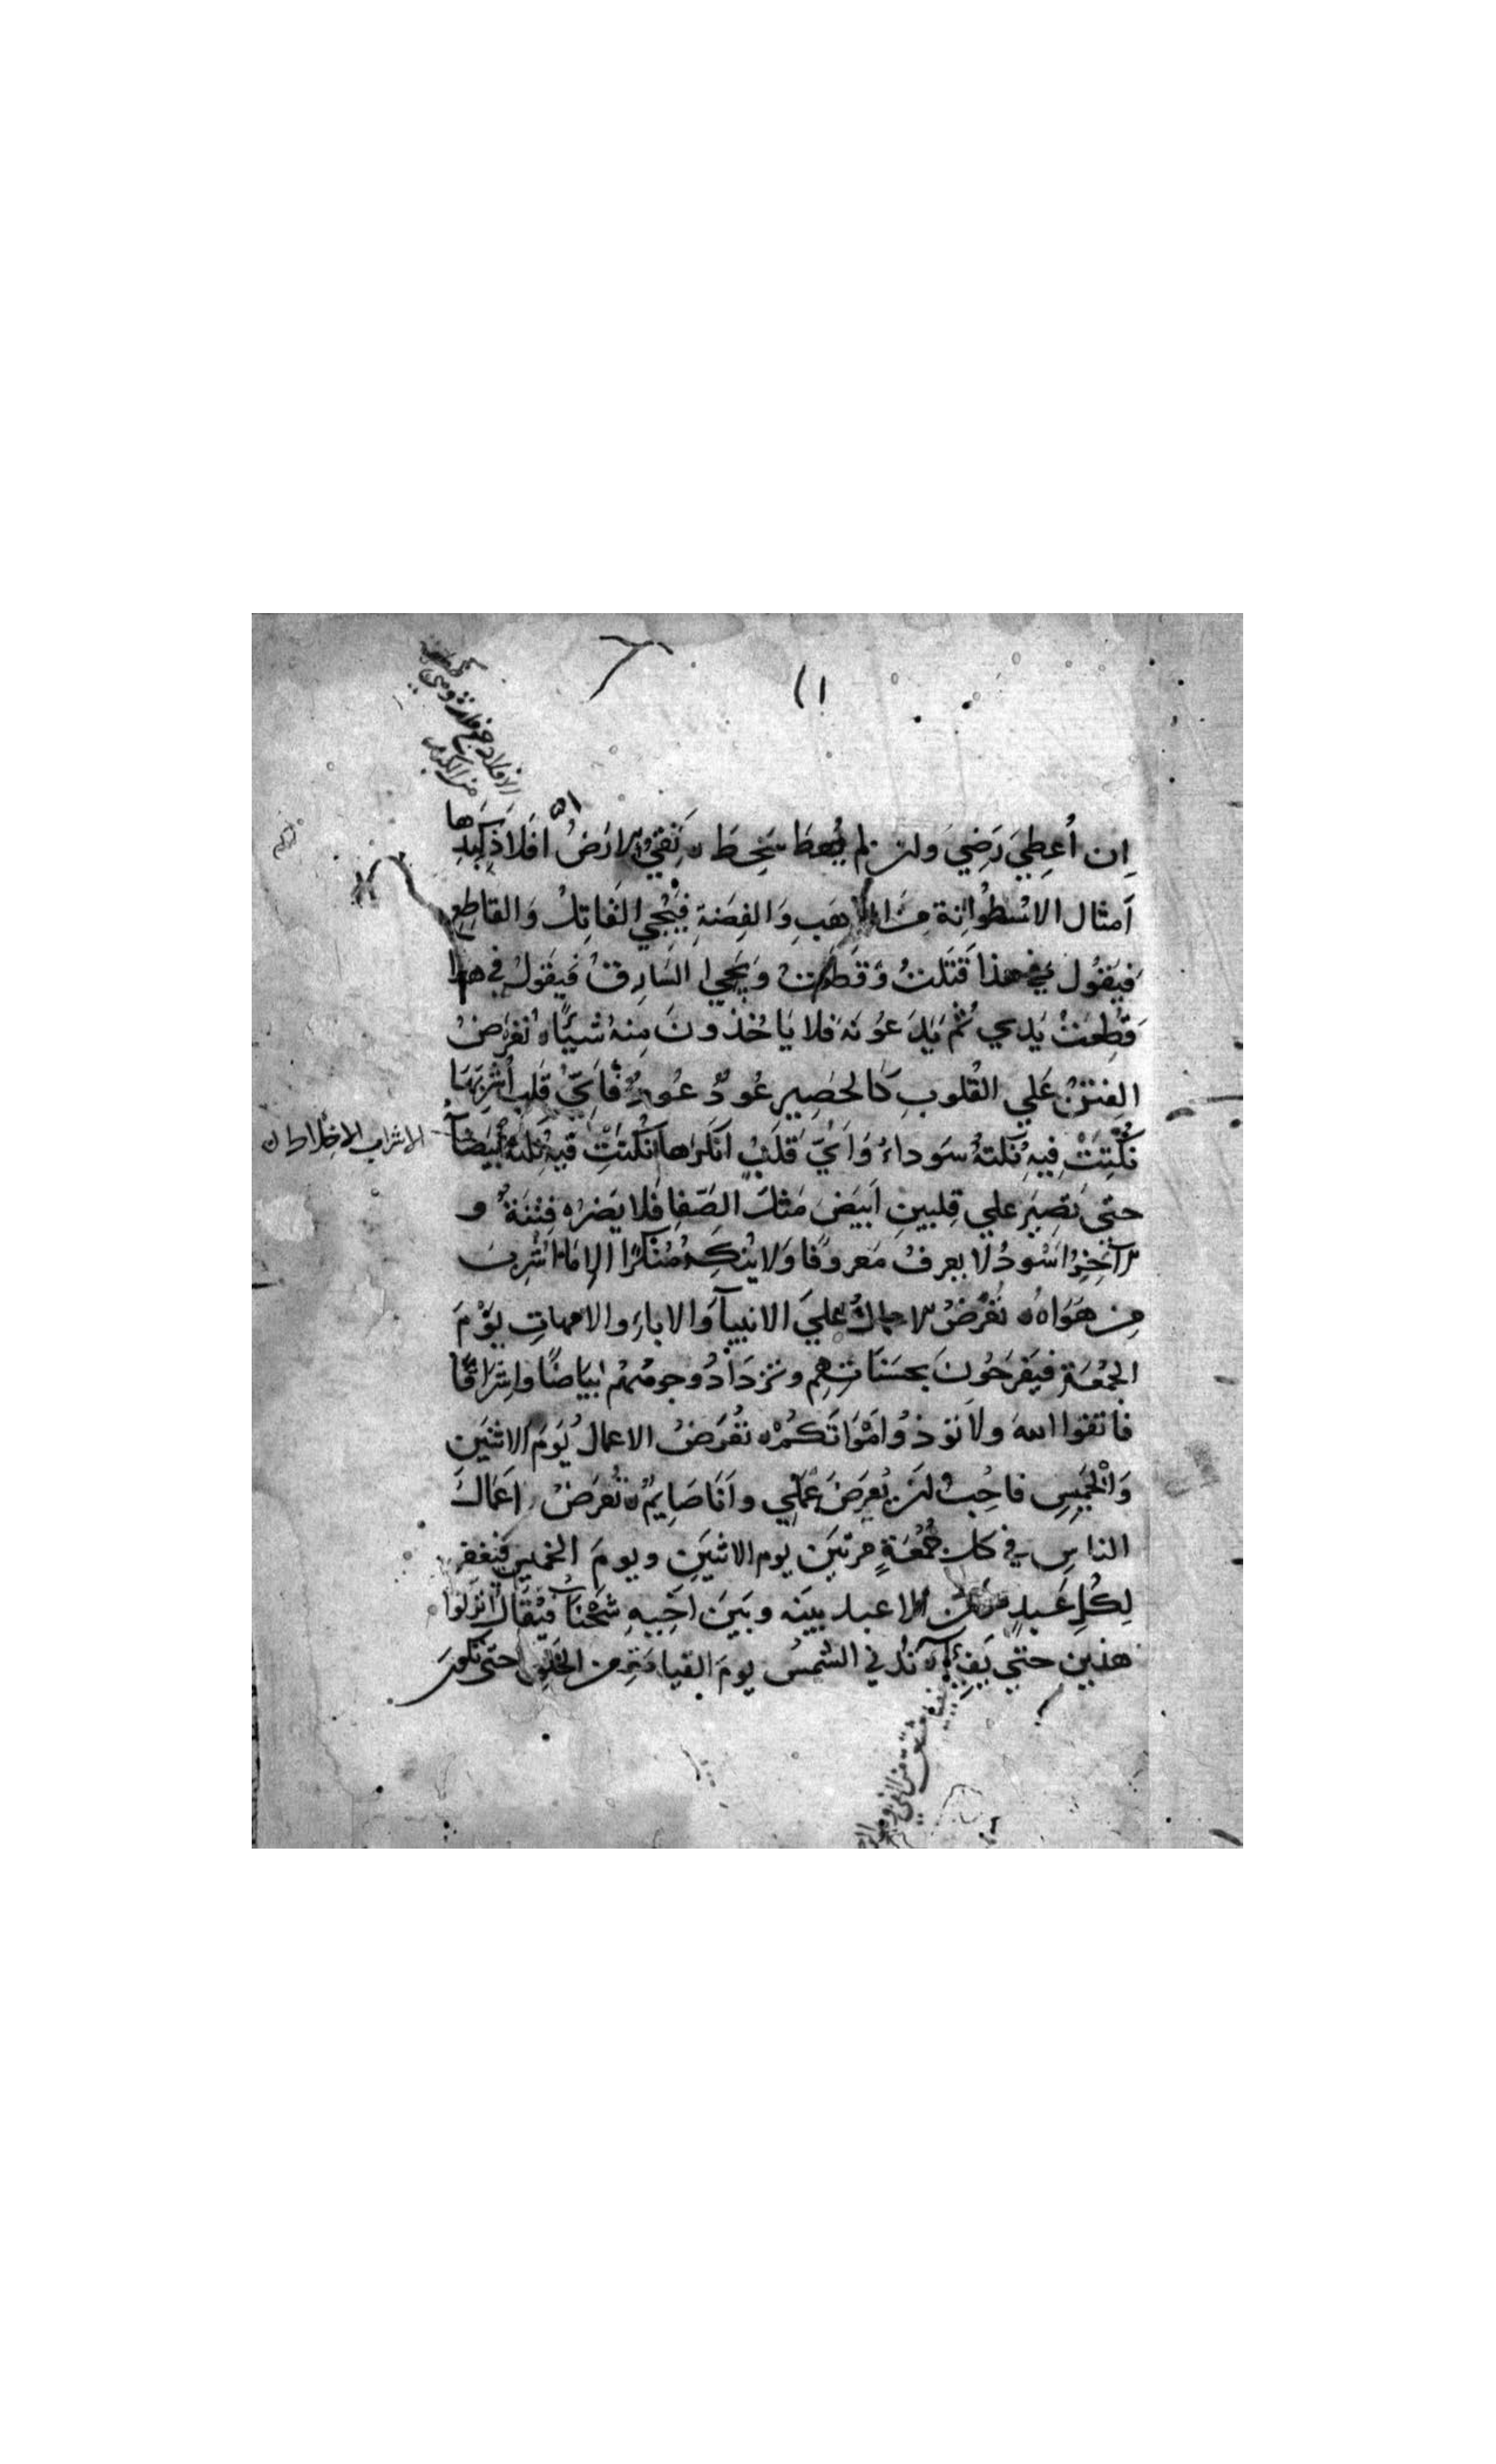 اِن اُعطِيَ رَضِيَ وان لم يُعطَ سَخِطَ ه تَقيُ الارَضُ افَلاَذَ كَبِدِها
اَمثال الاسْطوُانة مِنَ الذهَبِ وَالفِضَةِ فيَجيُ القَاتِلُ وَالقاطِع
فيَقوُل في هذا قَتَلتُ وَقَطَعتُ وَيجيُ السَارِقُ فَيقَولُ في هذا
قُطِعَتْ يَدي ثُم يَدَعوُنَهُ فلا يَاخُذوُنَ مِنهُ شَيئًا ه تُعرَضُ
الفِتَنُ عَلي القُلوبِ كالحصِيرِ عُودٌ عُودٌ فَاَيُّ قَلبٍ اُشرِبَهَا
نُكِتَتْ فيِهِ نُكتةٌ سَوداءُ وَاَيُّ قَلبٍ اَنكَرَها نُكتَتْ فيهِ نكتةٌ بَيضَآ
حتى تَصِيَر علي قلبينِ اَبيَضَ مَثلَ الصَفا فَلا يَضرُه فِتْنَةٌ و
الآخِرُ اَسْودُ لا يعرفُ مَعروفًا وَلا يُنكِرُ مُنكَرًا الا مَا اُشرِبَ
مِن هَوَاهُ ه تُعرَضُ الاعمالُ عَليَ الانبيآَ وَالاباءِ والامهاتِ يَوْمَ
الجُمعَةِ فَيفَرحُونَ بحسَنَاتِهِم وتَزدَادُ وجوههُم بَيَاضًا واِشرَاقًا
فاتقوا اللهَ ولا تؤذُوا اَمْوَاتَكُمْ ه تُعَرضُ الاعمالُ يَومَ الاثنَينِ
وَالخَمِيسِ فاحِبُ ان يُعرَضَ عَمَلِي واَنَا صَايِمٌ ه تُعرَضُ اَعَمالُ
الناسِ في كل جُمُعَةٍ مرتيَن يوم الاثنَينِ ويومَ الخميس فَيُغفَر
لِكُلِ عَبدٍ مؤمن الا عبد بينَه وبَينَ اخَيِهِ شَحْنَآ فيُقَال انزلوا
هذين حتي يَفِيئا ه تدني الشمسُ يومَ القيامَة من الخَلقِ حتى تكونَ
الاشراب الاختلاط ن